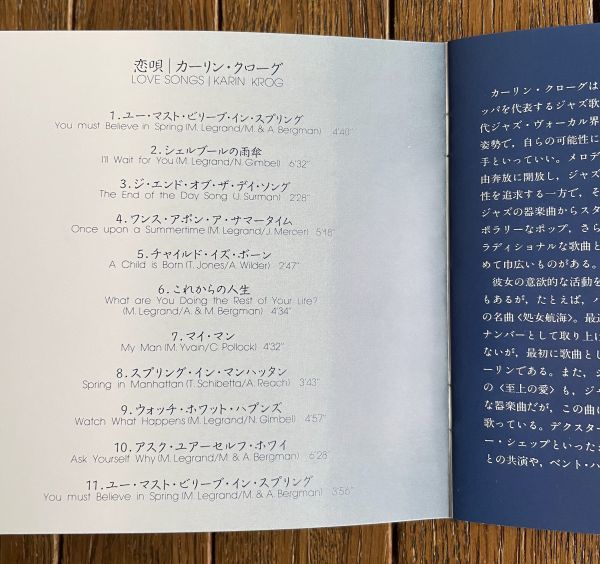 恋唄|カーリン・クローグ
LOVE SONGS | KARIN KROG
1.ユー・マスト・ビリーブ・イン・スプリング
You must Believe in Spring (M. Legrand/M. & A Bergman) 4'40"
2.シェルブールの雨傘
I'll Wait for You (M. Legrand/N. Gimbel) 6'32"
3.ジ・エンド・オブ・ザ・デイ・ソング
The End of the Day Song (J. Surman) 2'28"
4.ワンス・アポン・ア・サマータイム
Once upon a Summertime (M. Legrand/J. Mercer) 5'18"
5.チャイルド・イズ・ボーン
A Child is Born (T. Jones/A. Wilder) 2'47"
6.これからの人生
What are You Doing the Rest of Your Life?
(M. Legrand/A. & M. Bergman) 4'34"
7.マイ・マン
My Man (M. Yvain/C. Pollock) 4'32"
8.スプリング・イン・マンハッタン
Spring in Manhattan (T. Schibetta/A. Reach) 3'43"
9.ウォッチ・ホワット・ハプンズ
Watch What Happens (M. Legrand/N. Gimbel) 4'57"
10.アスク・ユアーセルフ・ホワイ
Ask Yourself Why (M. Legrand/M. & A. Bergman) 6'28"
11.ユー・マスト・ビリーブ・イン・スプリング
You must Believe in Spring (M. Legrand/M. & A. Bergman) 3'56"
カーリン・クローグは
ッパを代表するジャズ歌
代ジャズ・ヴォーカル界
姿勢で，自らの可能性に
手といっていい。メロデ
由奔放に開放し，ジャズ
性を追求する一方で，そ
ジャズの器楽曲からスタ
ポラリーなポップ，さら
ラディショナルな歌曲と
めて巾広いものがある。
彼女の意欲的な活動を
もあるが，たとえば，ハ
の名曲〈処女航海〉。最近
ナンバーとして取り上げ
ないが，最初に歌曲とし
ーリンである。また，ジ
の〈至上の愛〉も，ジュ
な器楽曲だが，この曲に
歌っている。デクスター
ー・シェップといったジ
との共演や，ベント・ハ